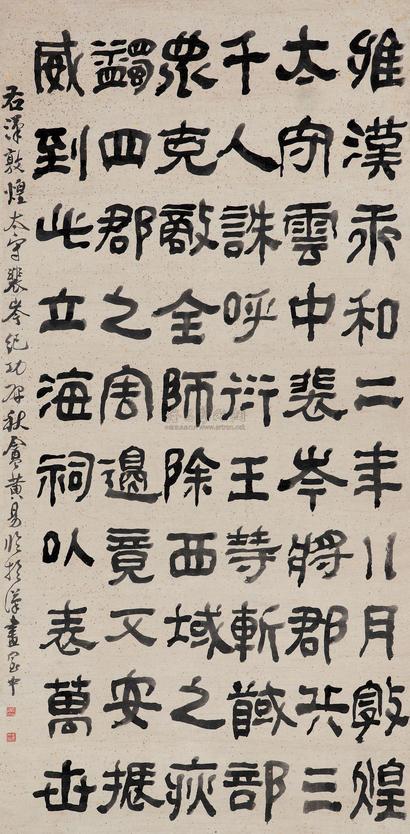 惟漢永和二年八月敦煌
太守雲中裴岑將郡兵三
千人誅呼衍王等斬馘部
眾克敵全師除西域之疢
蠲四郡之害邊竟艾安振
威到此立海祠以表萬世
右漢敦煌太守裴岑紀功碑秋盦黃易臨於漢畫室中